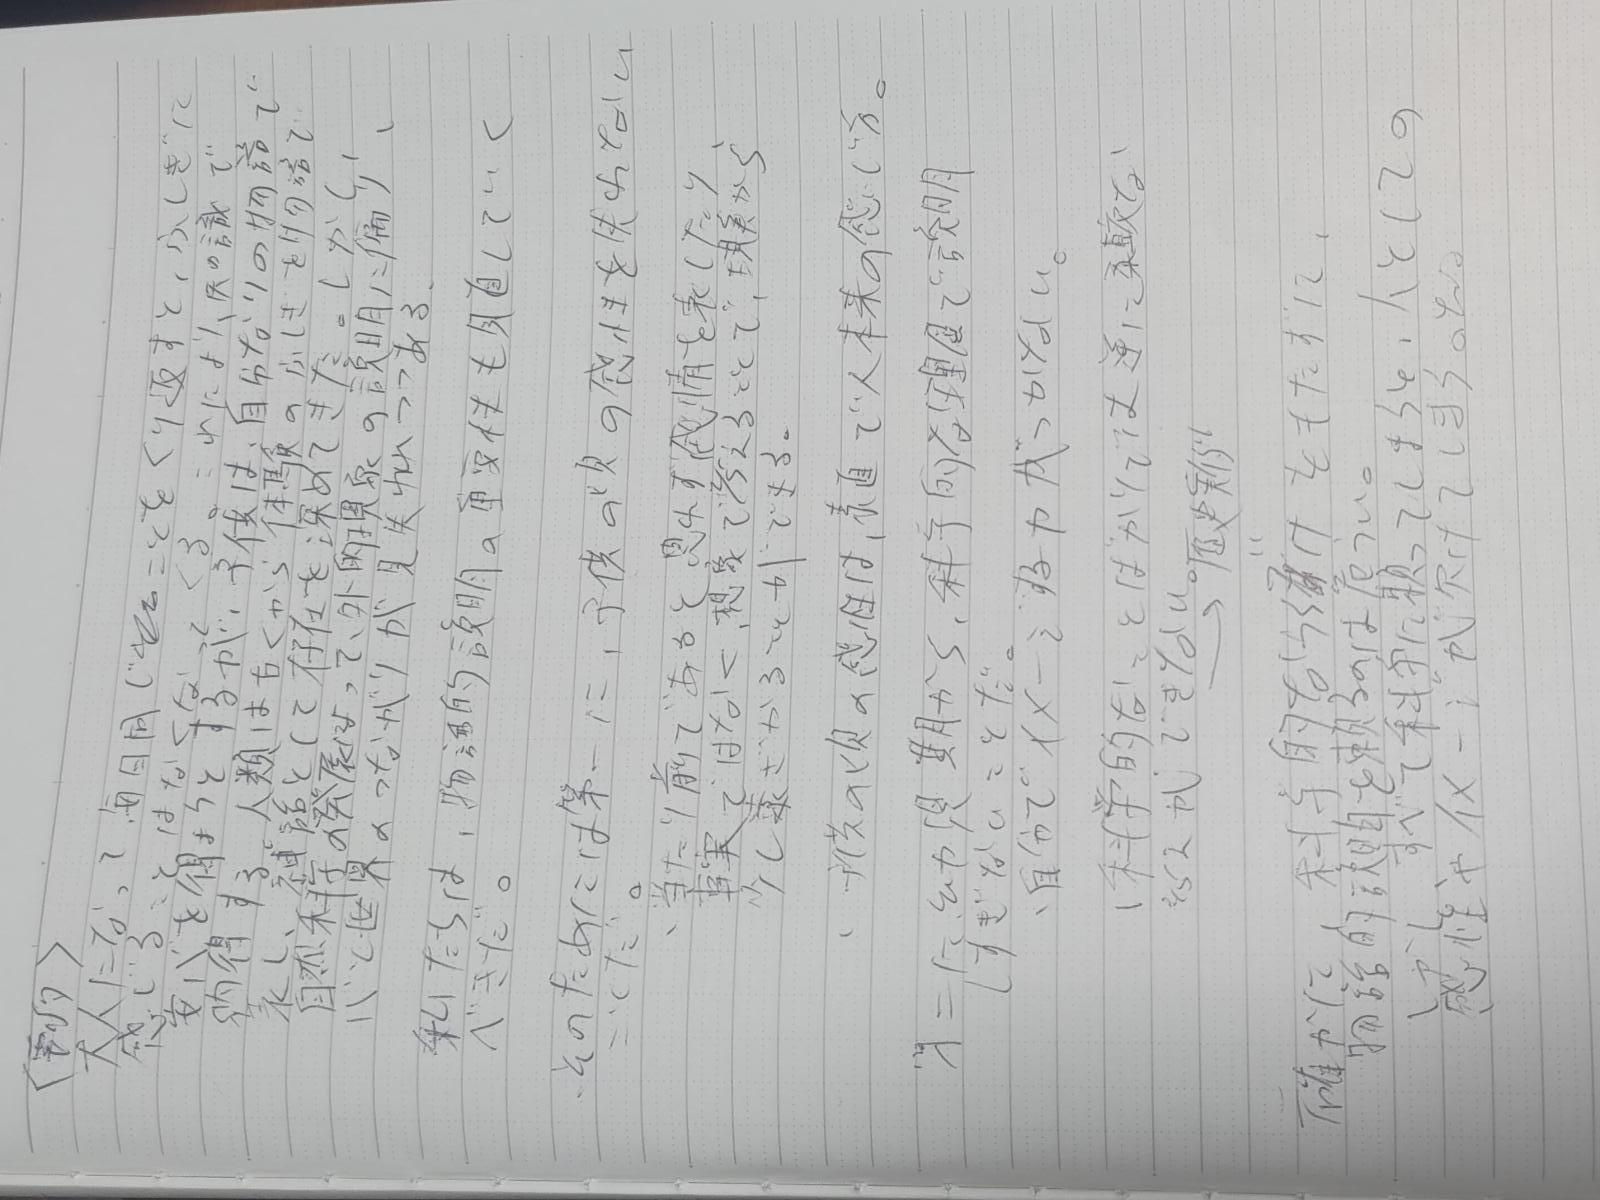 〈要約〉
大人になって毎日同じことをくり返すと、ふしぎに
感じることはなくなってくる。これにより人は知識で
安心を得ようとするが、子供は、自分なりの物語で
納得する。人類は古くから体験のふしぎを物語で
表し、神話として存在を深めてきた。しかし、
自然科学の発展によって、外的現象の説明に偏り、
心と世界のつながりが見失われつつある。
私たちは、物語的説明の重要性も見直していく
べきだ。
・そのためには第一に、子供の頃の感性を失わない
ことだ。
、当たり前であると思わず感情を表したり、
事実ではなく、想像で考えることで、現実から
少し遠ざかることができる。
、子供の頃の感性は、素直で人本来の感じ方。
第二に幼少期から、科学的な理屈で説明
しすぎないことだ。
、自分でイメージする力がつかない。
、科学的なことばかりでは逆に柔軟な
ができない。
確かに、科学的な をもたずに、
物語的説明を頼るのは危うい。
しかし、すべて科学に頼ってしまうと、人としての
感性やイメージが欠けてしまう